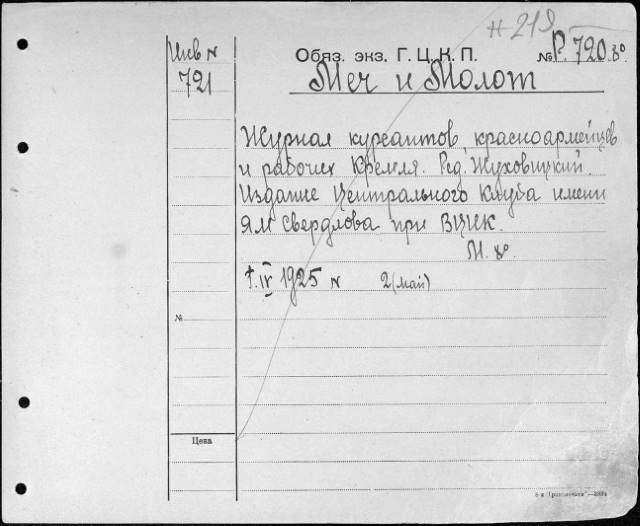 # 219
Инв N
721
Обяз. экз. Г. Ц. К. П.
№ Р. 720. 8°
Меч и Молот
Журнал курсантов, красноармейцев
и рабочих Кремля. Ред. Жуховицкий.
Издание Центрального Клуба имени
ЯМ Свердлова при ВЦИК.
М. 8°
IV 1925 N 2 (май)
№
Цена